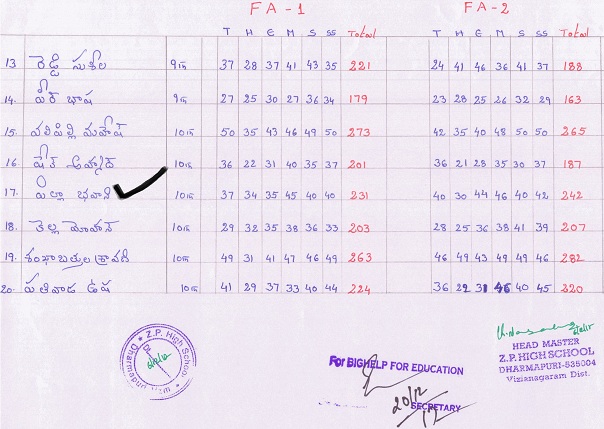 FA - 1 FA - 2
T H E M S SS Total T H E M S SS Total
13 రెడ్డి సుశీల 9th 37 28 37 41 43 35 221 24 41 46 36 41 37 188
14. పీర్ భాష 9th 27 25 30 27 36 34 179 23 28 25 26 32 29 163
15. వలిపిల్లి మహేష్ 10th 50 35 43 46 49 50 273 42 35 40 48 50 50 265
16 షేక్ 10th 36 22 31 40 35 37 201 36 21 28 35 30 37 187
17. పిల్లా భవాని 10th 37 34 35 45 40 40 231 40 30 44 46 40 42 242
18. తెల్ల మోహన్ 10th 29 32 35 38 36 33 203 28 25 36 38 41 39 207
19. శంఖాబత్తుల శ్రావణి 10th 49 31 41 47 46 49 263 46 49 43 49 49 46 282
20. పతివాడ ఉష 10th 41 29 37 33 40 44 224 36 22 31 46 40 45 220
Z.P. High School
Dharmapuri
For BIGHELP FOR EDUCATION
20/12/12
SECRETARY
HEAD MASTER
Z.P. HIGH SCHOOL
DHARMAPURI-535004
Vizianagaram Dist.